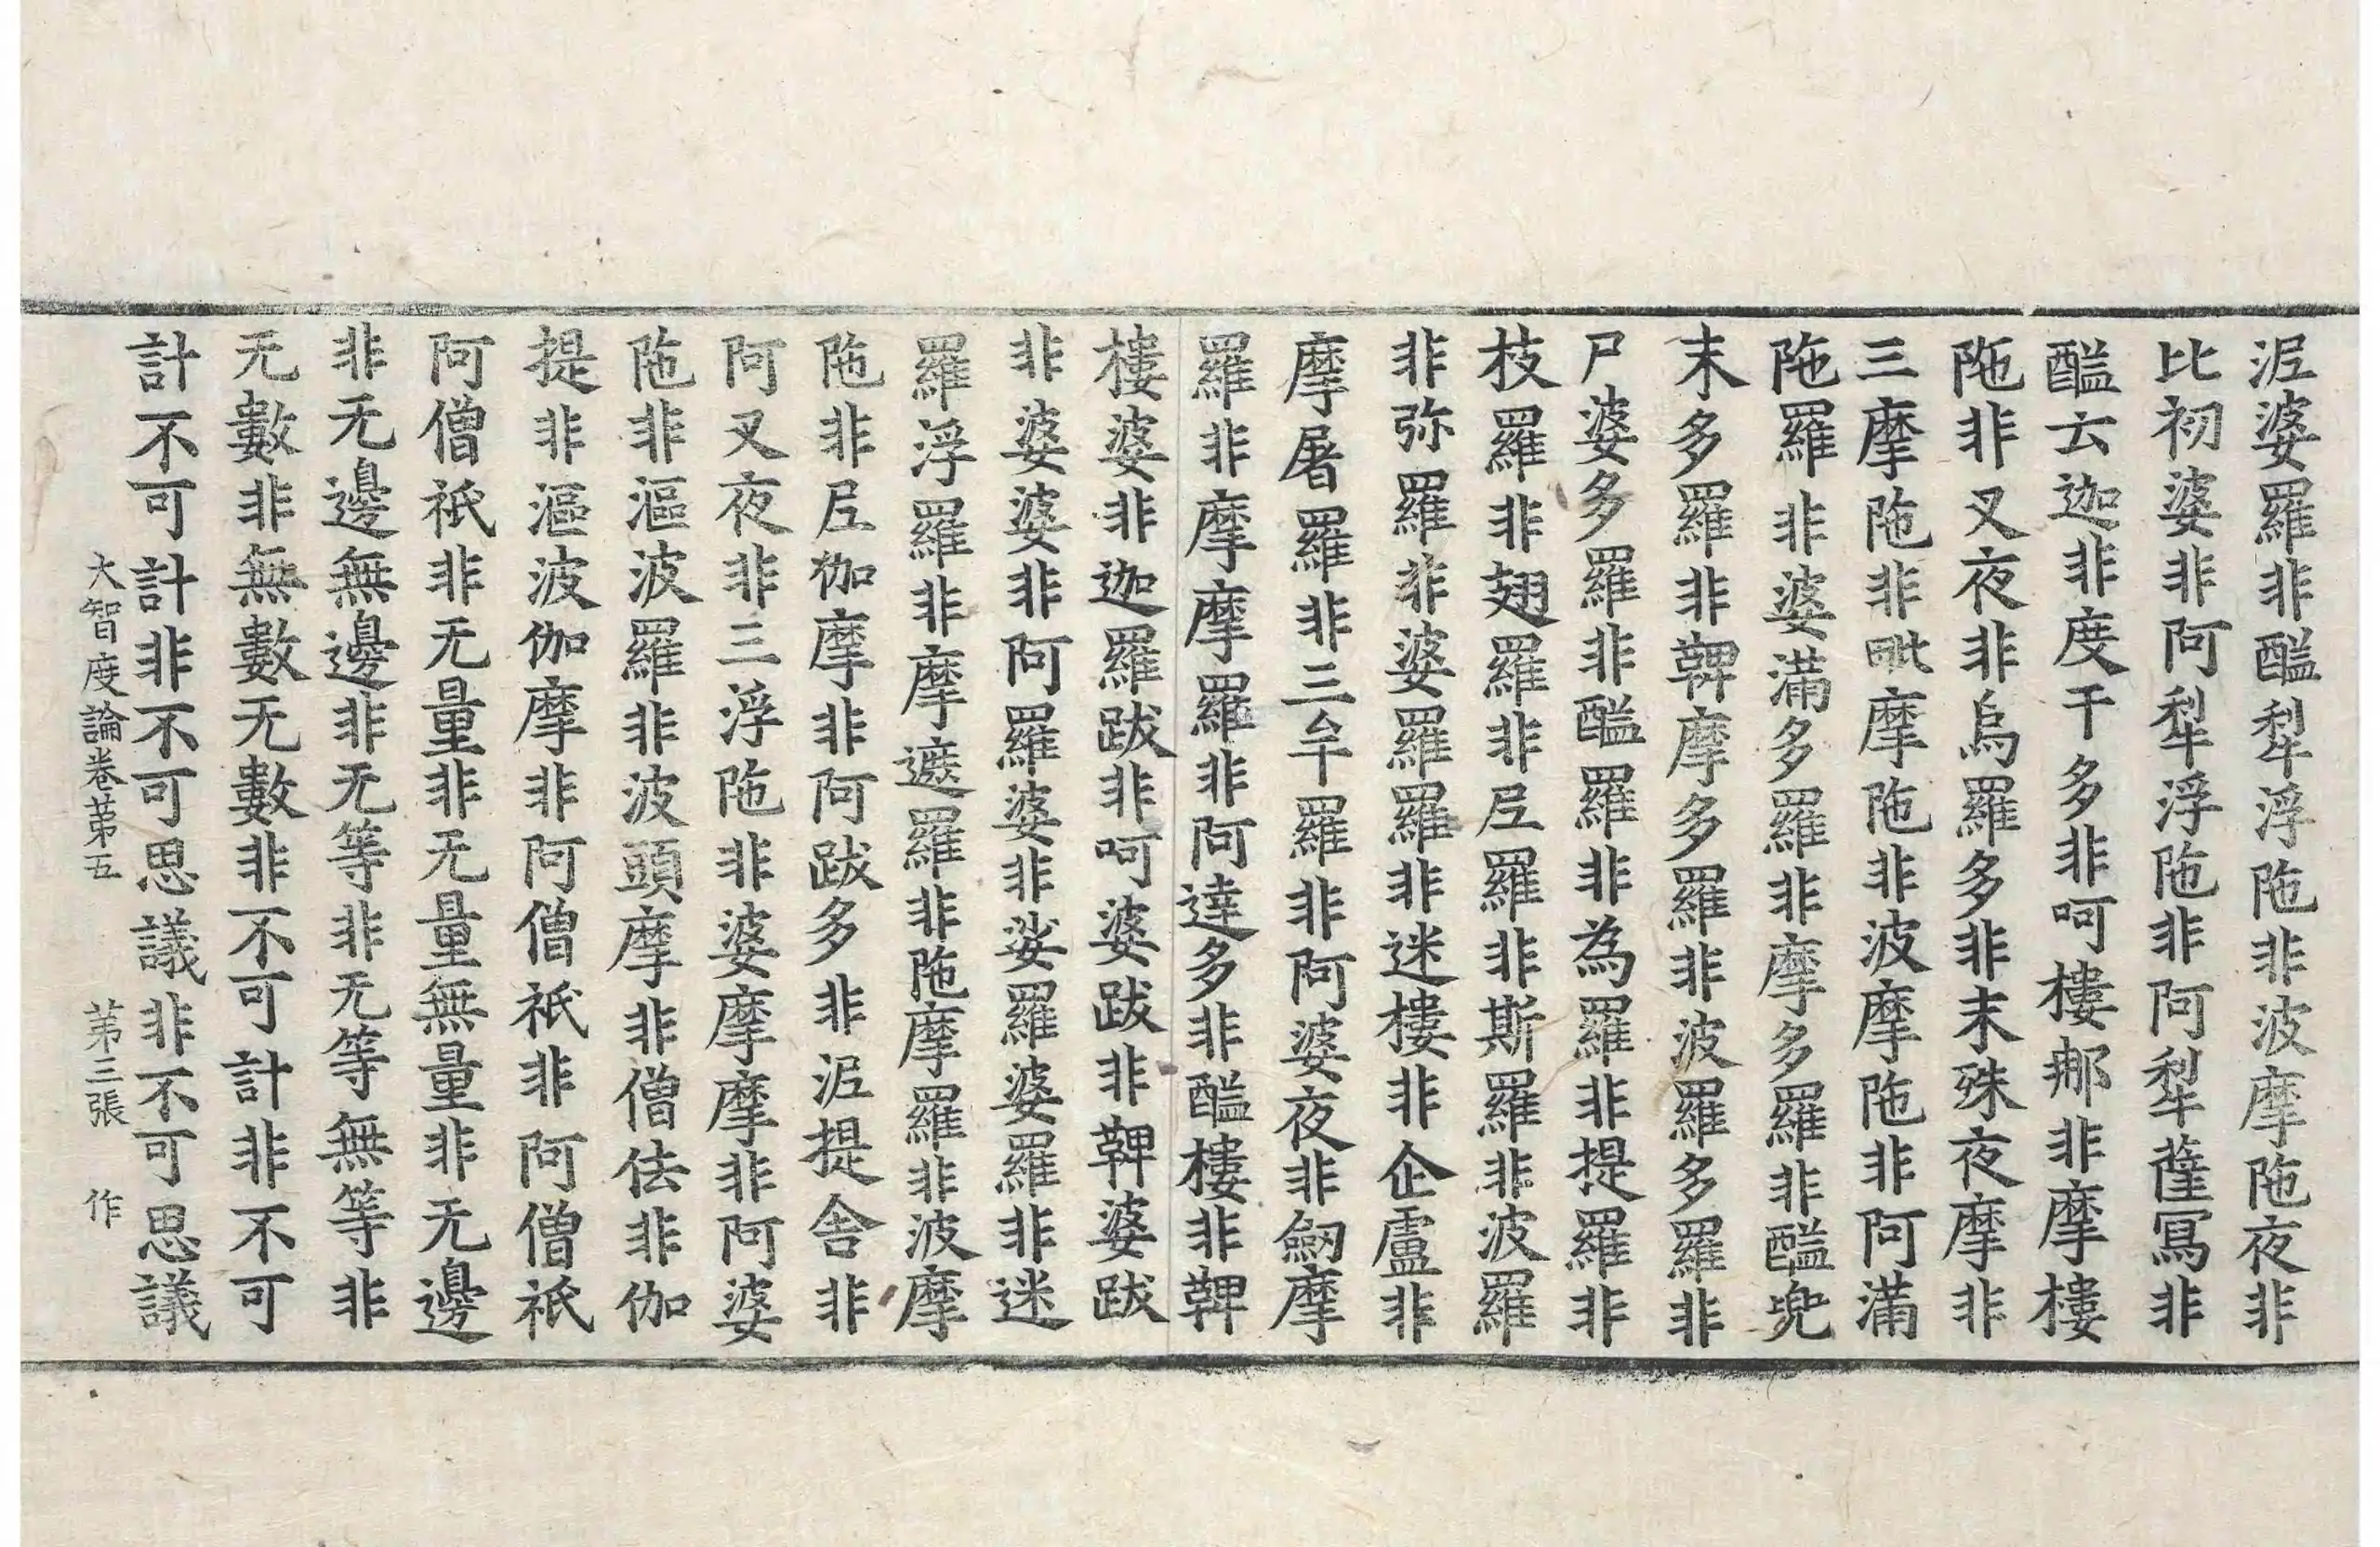 泥婆羅非醯犁浮陁非波摩陁夜非
比初婆非阿犁浮陁非阿犁薩冩非
醯云迦非度于多非呵樓那非摩樓
陁非叉夜非烏羅多非末殊夜摩非
三摩陁非毗摩陁非波摩陁非阿滿
陁羅非婆滿多羅非摩多羅非醯兜
末多羅非鞞摩多羅非波羅多羅非
尸婆多羅非醯羅非為羅非提羅非
枝羅非翅羅非尼羅非斯羅非波羅
非弥羅非婆羅羅非迷樓非企盧非
摩屠羅非三牟羅非阿婆夜非劒摩
羅非摩摩羅非阿達多非醯樓非鞞
樓婆非迦羅跋非呵婆跋非鞞婆跋
非婆婆非阿羅婆非娑羅婆羅非迷
羅浮羅非摩遮羅非陁摩羅非波摩
陁非尼伽摩非阿跋多非泥提舍非
阿叉夜非三浮陁非婆摩摩非阿婆
陁非漚波羅非波頭摩非僧佉非伽
提非漚波伽摩非阿僧祇非阿僧祇
阿僧祇非无量非无量無量非无邊
非无邊無邊非无等非无等無等非
无數非無數无數非不可計非不可
計不可計非不可思議非不可思議
大智度論卷苐五 苐三張 作